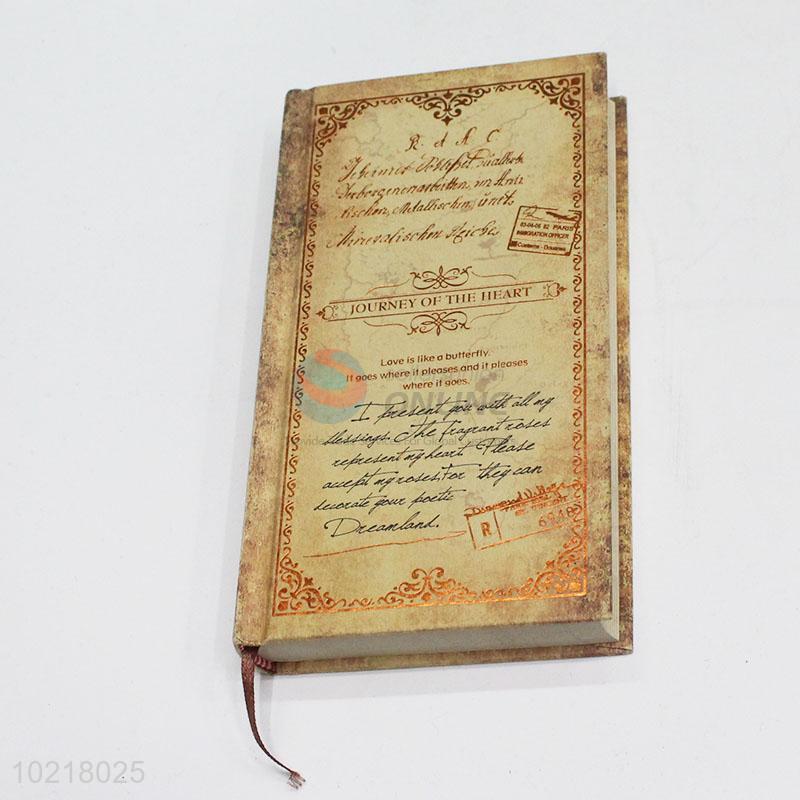 R A A C
Geheimes
Verborgenenarbeitten, im Ani
tischen, Metallischen, unet.
Mineralischen Reiche.
03-04-05 82 PARIS
IMMIGRATION OFFICER
Customs - Douanes
JOURNEY OF THE HEART
Love is like a butterfly.
It goes where it pleases and it pleases
where it goes.
ONLINE
I present you with all my
blessings. The fragrant roses
represent my heart. Please
accept my roses. For they can
decorate your poetic
Dreamland.
R
6748
10218025